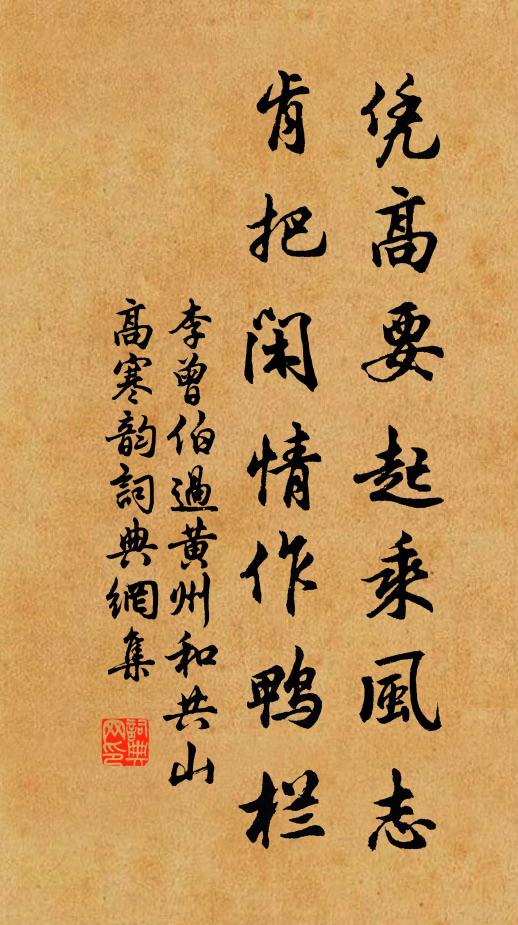 凭高要起乘風志
肯把閑情作鴨栏
李曾伯過黄州和共山
高寒韵詞典網集
詞典网印